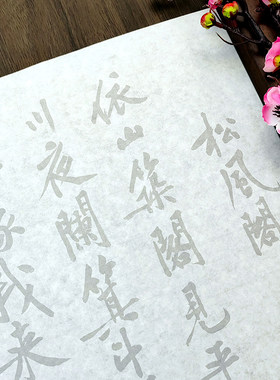 松風閣
依山築閣見平
川夜闌箕斗
我来